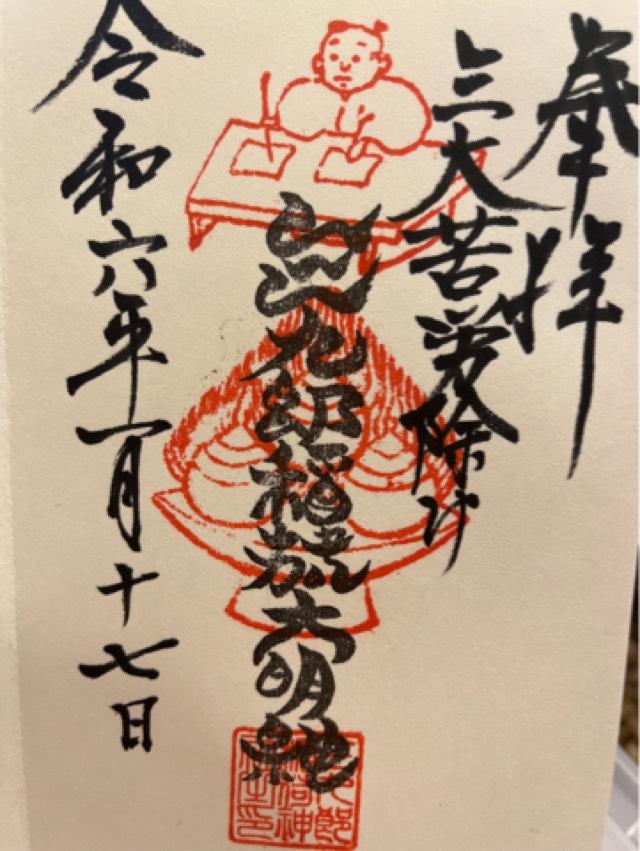 奉拝
三大苦労除け
九郎稲荷大明神
令和六年一月十七日